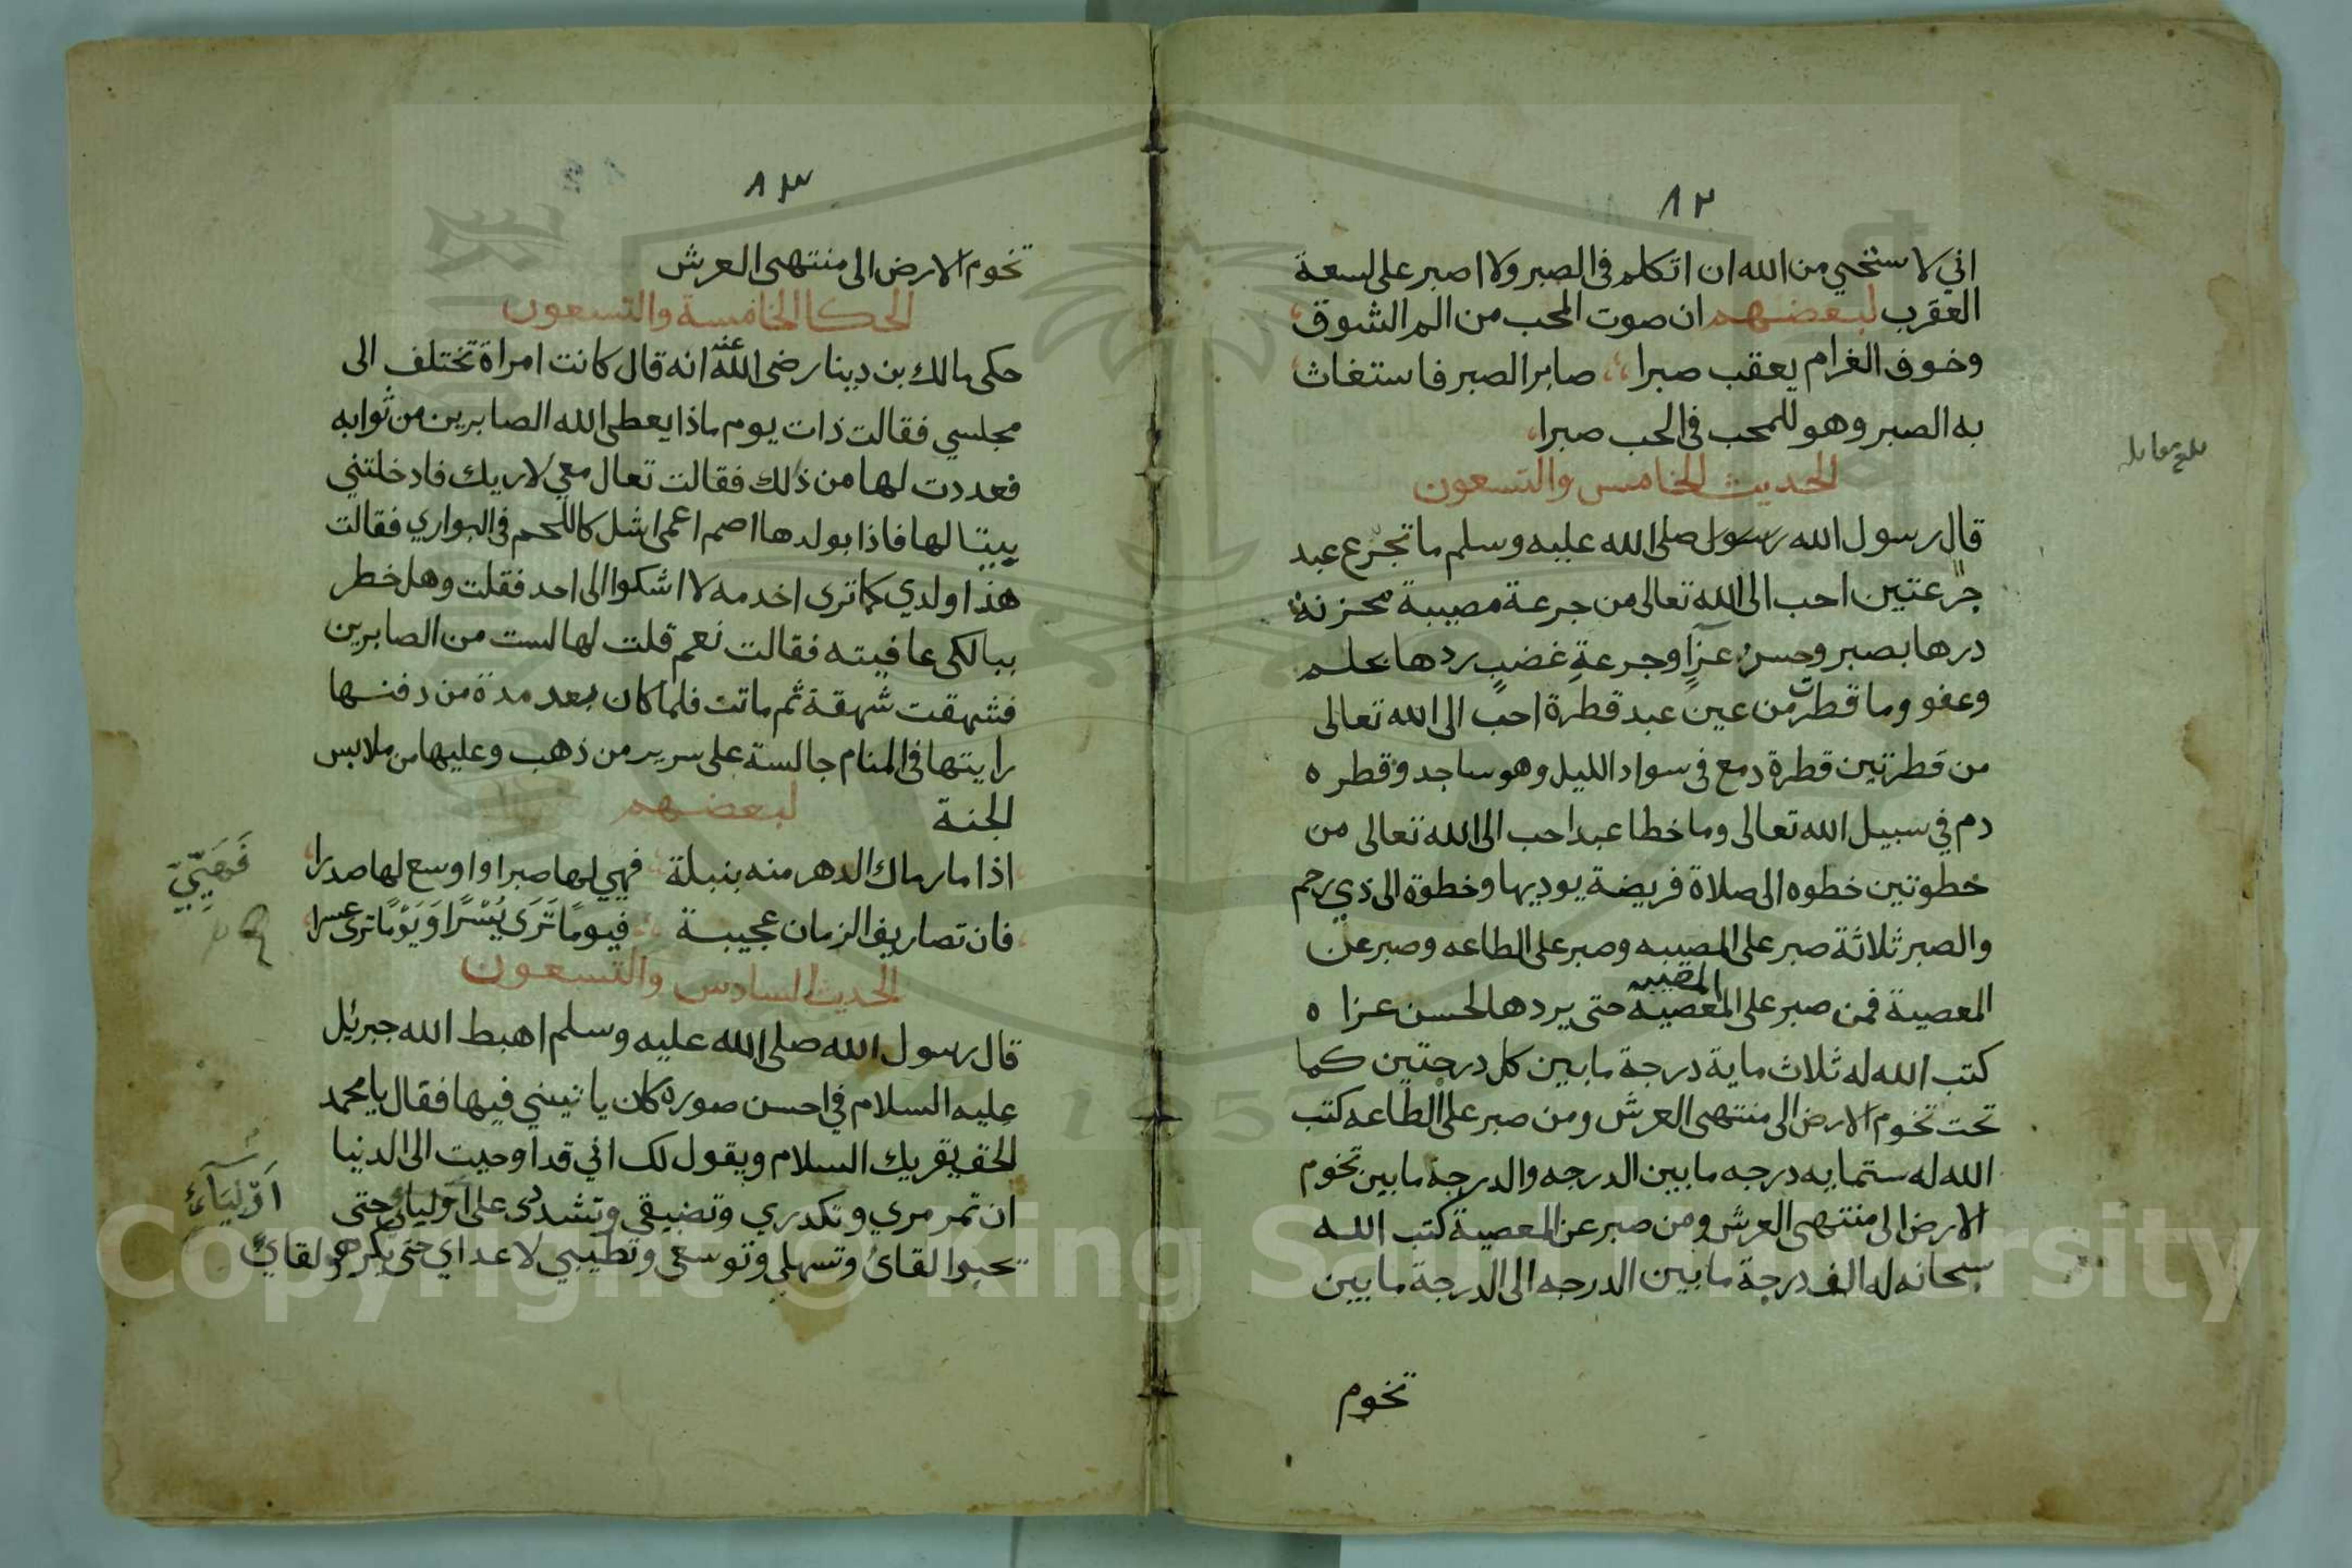 ٨٢
اني لاستحيي من الله ان اتكلم في الصبر ولا اصبر على لسعة
العقرب لبعضهم ان صوت المحب من الم الشوق
وخوف الغرام يعقب صبرا صابر الصبر فاستغاث
به الصبر وهو للمحب في الحب صبرا
الحديث الخامس والتسعون
قال رسول الله رسول صلى الله عليه وسلم ما تجرّع عبد
جرعتين احب الى الله تعالى من جرعة مصيبة محزنة
درها بصبر وحسن عزآٍ وجرعةِ غضبٍ ردها بحلم
وعفو وما قطرت من عين عبد قطرة احب الى الله تعالى
من قطرتين قطرة دمع في سواد الليل وهو ساجد وقطره
دم في سبيل الله تعالى وما خطا عبد احب الى الله تعالى من
خطوتين خطوه الى صلاة فريضة يوديها وخطوة الى ذي رحم
والصبر ثلاثة صبر على المصيبه وصبر على الطاعه وصبر عن
المصيبه
المعصية فمن صبر على المعصية حتى يردها لحسن عزاه
كتب الله له ثلاث ماية درجة ما بين كل درجتين كما
تحت تخوم الارض الى منتهى العرش ومن صبر على الطاعه كتب
الله له ستمايه درجه ما بين الدرجه والدرجة ما بين تخوم
الارض الى منتهى العرش ومن صبر عن المعصية كتب الله
سبحانه له الف درجة ما بين الدرجه الى الدرجة ما بين
تخوم
بلغ مقابله
٨٣
تخوم الارض الى منتهى العرش
الحكا الخامسة والتسعون
حكى مالك بن دينار رضى الله عنه انه قال كانت امراة تختلف الى
مجلسي فقالت ذات يوم ماذا يعطى الله الصابرين من ثوابه
فعددت لها من ذلك فقالت تعال معي لاريك فادخلتني
بيتا لها فاذا بولدها اصم اعمى اشل كاللحم في البواري فقالت
هذا ولدي كما ترى اخدمه لا اشكوا الى احد فقلت وهل خطر
ببالكى عافيته فقالت نعم قلت لها لست من الصابرين
فشهقت شهقة ثم ماتت فلما كان بعد مدة من دفنها
رايتها في المنام جالسة على سرير من ذهب وعليها من ملابس
الجنة لبعضهم
اذا ما رماك الدهر منه بنبلة فهيي لها صبرا واوسع لها صدرا
فان تصاريف الزمان عجيبة فيومًا تَرَى يُسْرًا وَيَوْمًا ترى عسرا
الحديث السادس والتسعون
قال رسول الله صلى الله عليه وسلم اهبط الله جبرئل
عليه السلام في احسن صوره كان ياتيني فيها فقال يا محمد
الحق يقريك السلام ويقول لك اني قد اوحيت الى الدنيا
ان تمرمري وتكدري وتضيقي وتشددى على اوليائى حتى
يحبوا لقائ وتسهلي وتوسعى وتطيبي لاعداي حتى يكرهو لقائ
فَهَيِّيّ
اَوْلِيَآئِ